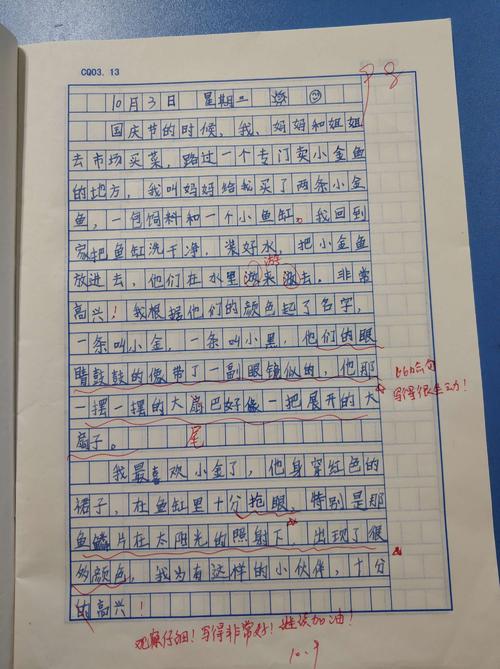 CQ03.13
10月3日 星期二
国庆节的时候，我、妈妈和姐姐
去市场买菜，路过一个专门卖小金鱼
的地方，我叫妈妈给我买了两条小金
鱼，一包饲料和一个小鱼缸。我回到
家把鱼缸洗干净，装好水，把小金鱼
游
放进去，他们在水里游来游去。非常
高兴！我根据他们的颜色起了名字，
一条叫小金，一条叫小黑，他们的眼
睛鼓鼓的像带了一副眼镜似的，他那
比喻句
写得很生动！
一摆一摆的大扇巴好像一把展开的大
尾
扇子。
我最喜欢小金了，他身穿红色的
裙子，在鱼缸里十分抢眼，特别是那
鱼鳞片在太阳光的照射下，出现了很
多颜色，我为有这样的小伙伴，十分
的高兴！
观察仔细！写得非常好！继续加油！
10.9